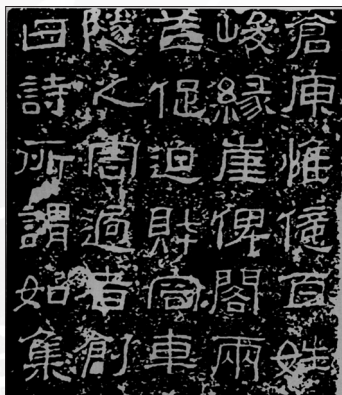 倉庾惟億百姓
峻緣崖俾閣兩
笮促迫財容車
隧之害過者創
曰詩所謂如集